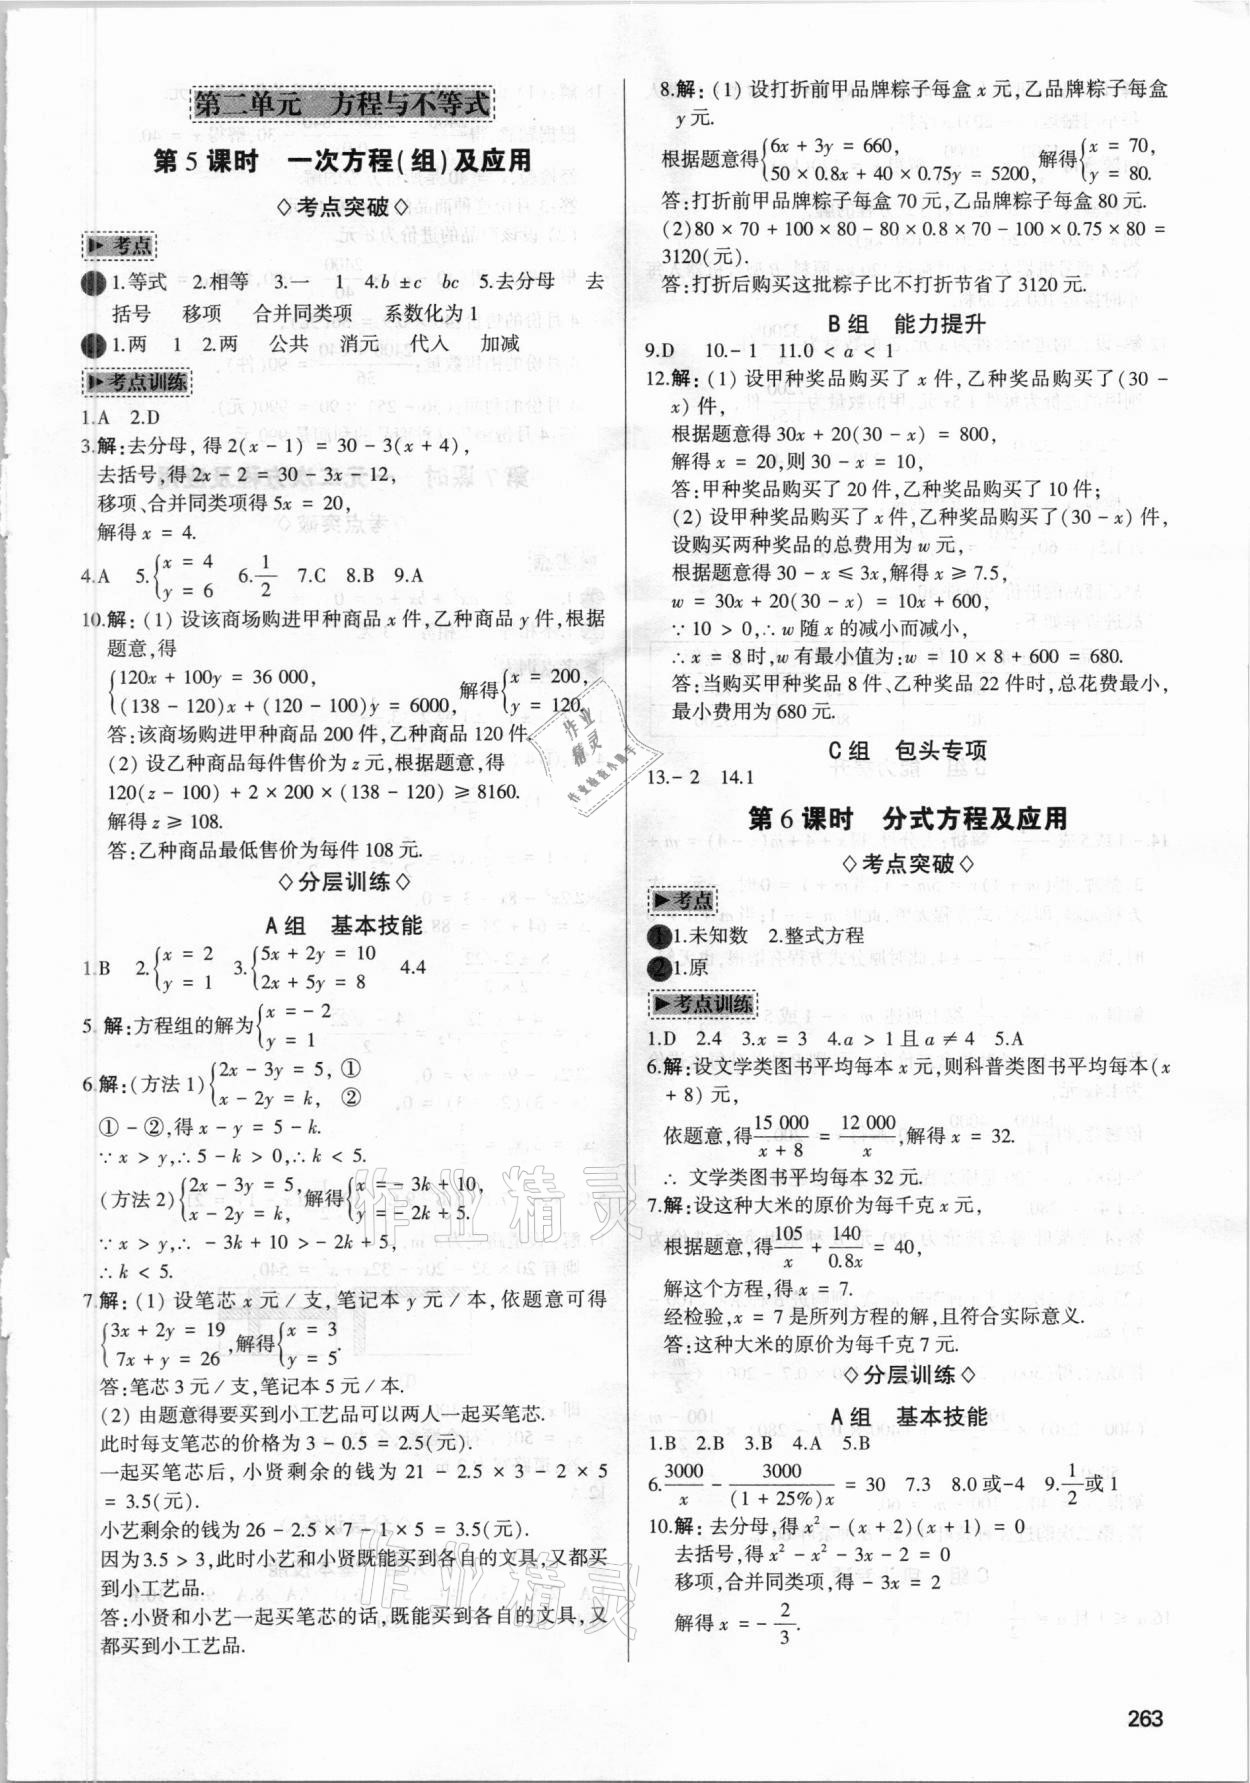 第二单元 方程与不等式
第 5 课时 一次方程(组)及应用
◇考点突破◇
考点
1.等式 2.相等 3.一 1 4.b ±c bc 5.去分母 去
括号 移项 合并同类项 系数化为1
1.两 1 2.两 公共 消元 代入 加减
考点训练
1.A 2.D
3.解:去分母,得 2(x-1) = 30-3(x+4),
去括号,得2x-2 = 30-3x-12,
移项、合并同类项得5x = 20,
解得 x = 4.
4.A 5.{x = 4 y = 6 6.1/2 7.C 8.B 9.A
10.解:(1) 设该商场购进甲种商品 x 件,乙种商品 y 件,根据
题意,得
{120x+100y = 36 000, (138-120)x+(120-100)y = 6000, 解得{x = 200, y = 120.
答:该商场购进甲种商品 200 件,乙种商品 120 件.
(2) 设乙种商品每件售价为 z 元,根据题意,得
120(z-100)+2×200×(138-120) ≥ 8160.
解得 z ≥ 108.
答:乙种商品最低售价为每件 108 元.
◇分层训练◇
A 组 基本技能
1.B 2.{x = 2 y = 1 3.{5x+2y = 10 2x+5y = 8 4.4
5.解:方程组的解为{x =-2 y = 1
6.解:(方法 1){2x-3y = 5, ① x-2y = k, ②
①-②,得 x-y = 5-k.
∵x > y,∴5-k > 0,∴k < 5.
(方法 2){2x-3y = 5, x-2y = k, 解得{x =-3k+10, y =-2k+5.
∵x > y,∴-3k+10 >-2k+5,
∴k < 5.
7.解:(1) 设笔芯 x 元/支,笔记本 y 元/本,依题意可得
{3x+2y = 19 7x+y = 26,解得{x = 3 y = 5.
答:笔芯 3 元/支,笔记本 5 元/本.
(2) 由题意得要买到小工艺品可以两人一起买笔芯.
此时每支笔芯的价格为 3-0.5 = 2.5(元).
一起买笔芯后,小贤剩余的钱为 21-2.5×3-2×5
= 3.5(元).
小艺剩余的钱为 26-2.5×7-1×5 = 3.5(元).
因为3.5 > 3,此时小艺和小贤既能买到各自的文具,又都买
到小工艺品.
答:小贤和小艺一起买笔芯的话,既能买到各自的文具,又
都买到小工艺品.
8.解:(1) 设打折前甲品牌粽子每盒 x 元,乙品牌粽子每盒
y 元.
根据题意得{6x+3y = 660, 50×0.8x+40×0.75y = 5200, 解得{x = 70, y = 80.
答:打折前甲品牌粽子每盒 70 元,乙品牌粽子每盒 80 元.
(2)80×70+100×80-80×0.8×70-100×0.75×80 =
3120(元).
答:打折后购买这批粽子比不打折节省了 3120 元.
B 组 能力提升
9.D 10.-1 11.0 < a < 1
12.解:(1) 设甲种奖品购买了 x 件,乙种奖品购买了(30-
x) 件,
根据题意得 30x+20(30-x) = 800,
解得 x = 20,则 30-x = 10,
答:甲种奖品购买了 20 件,乙种奖品购买了 10 件;
(2) 设甲种奖品购买了 x 件,乙种奖品购买了(30-x) 件,
设购买两种奖品的总费用为 w 元,
根据题意得 30-x ≤ 3x,解得 x ≥ 7.5,
w = 30x+20(30-x) = 10x+600,
∵10 > 0,∴w 随 x 的减小而减小,
∴x = 8 时,w 有最小值为:w = 10×8+600 = 680.
答:当购买甲种奖品 8 件、乙种奖品 22 件时,总花费最小,
最小费用为 680 元.
C 组 包头专项
13.-2 14.1
第 6 课时 分式方程及应用
◇考点突破◇
考点
1 1.未知数 2.整式方程
2 1.原
考点训练
1.D 2.4 3.x = 3 4.a > 1 且 a ≠ 4 5.A
6.解:设文学类图书平均每本 x 元,则科普类图书平均每本(x
+8) 元,
依题意,得15 000/(x+8) = 12 000/x,解得 x = 32.
∴ 文学类图书平均每本 32 元.
7.解:设这种大米的原价为每千克 x 元,
根据题意,得105/x + 140/0.8x = 40,
解这个方程,得 x = 7.
经检验,x = 7 是所列方程的解,且符合实际意义.
答:这种大米的原价为每千克 7 元.
◇分层训练◇
A 组 基本技能
1.B 2.B 3.B 4.A 5.B
6.3000/x - 3000/(1+25%)x = 30 7.3 8.0 或-4 9.1/2或 1
10.解:去分母,得 x²-(x+2)(x+1) = 0
去括号,得 x²-x²-3x-2 = 0
移项,合并同类项,得-3x = 2
解得 x =-2/3.
263
作业精灵
作业精灵
作业精灵